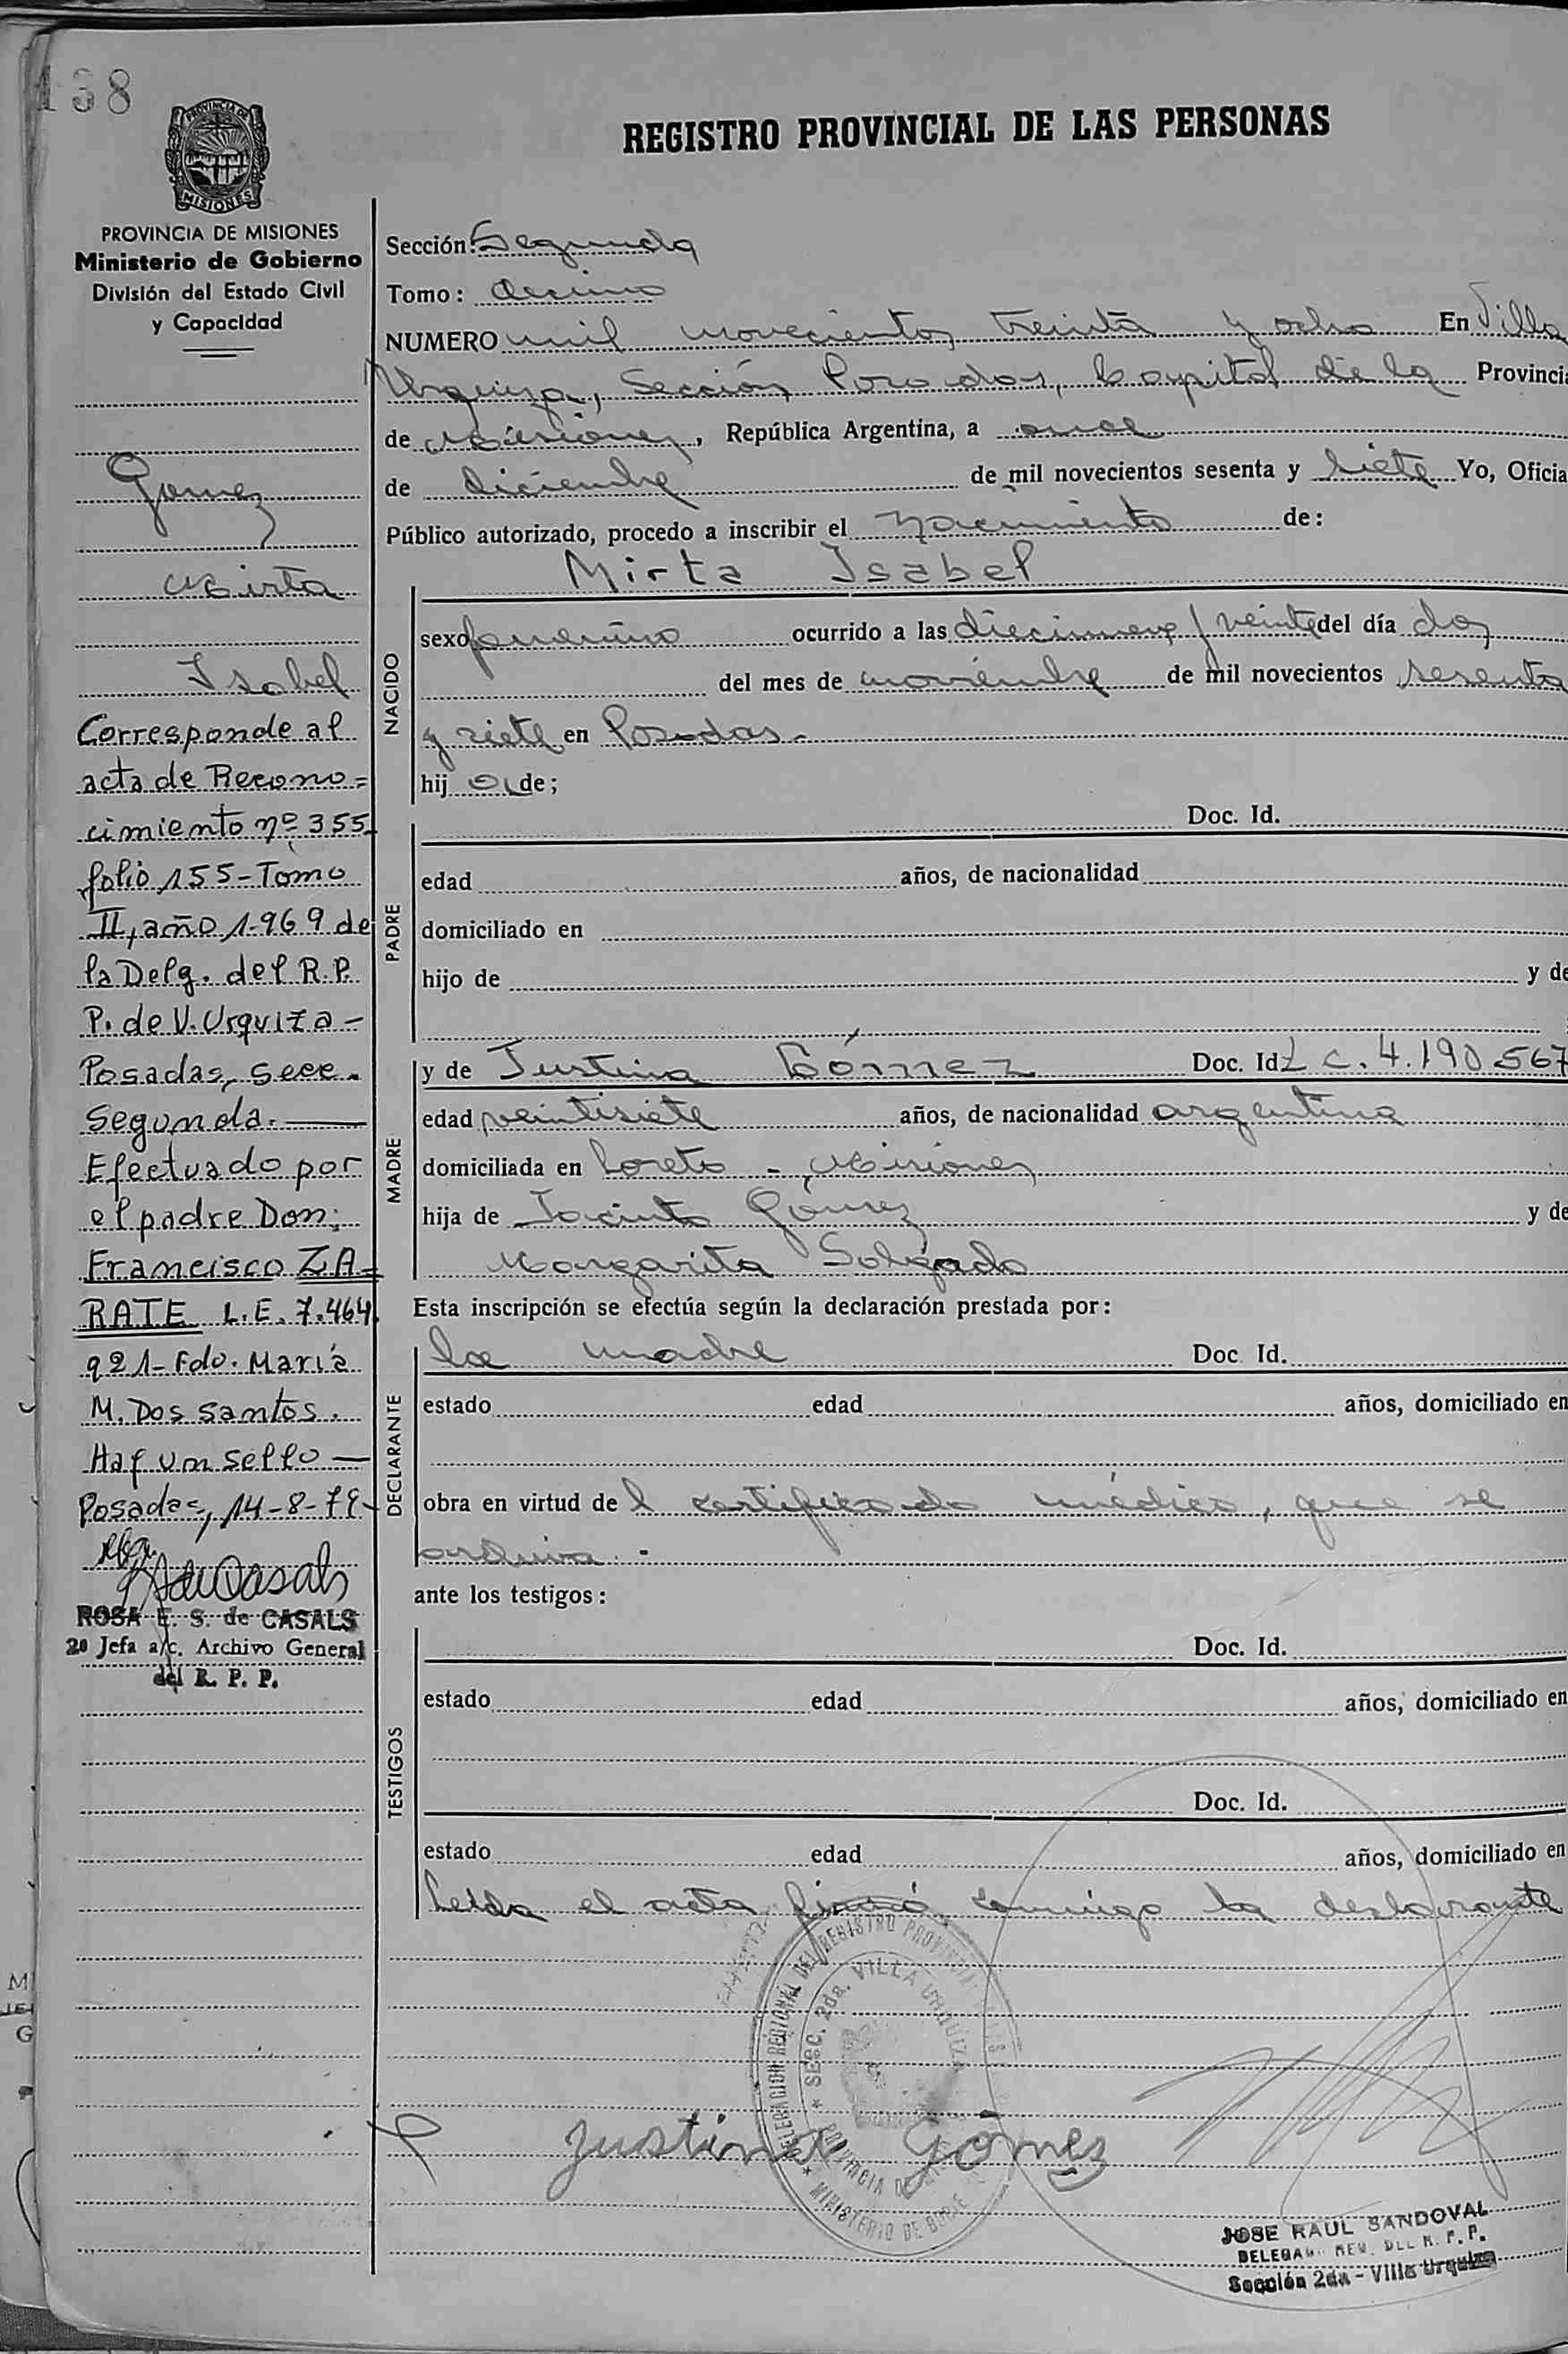 138
PROVINCIA DE
MISIONES
REGISTRO PROVINCIAL DE LAS PERSONAS
PROVINCIA DE MISIONES
Ministerio de Gobierno
División del Estado Civil
y Capacidad
Gomez
Mirta
Isabel
Corresponde al
acta de Recono=
cimiento nº 355
folio 155-Tomo
II, año 1.969 de
la Delg. del R.P.
P. de V. Urquiza-
Posadas, secc.
Segunda.
Efectuado por
el padre Don:
Francisco ZA=
RATE L.E. 7.464.
921- Fdo. María
M. Dos Santos.
Haf un sello
Posadas, 14-8-79-
ROSA E. S. de CASALS
2º Jefa a/c. Archivo General
del R. P. P.
Sección: Segunda
Tomo: decimo
NUMERO mil novecientos treinta y ocho En Villa
Urquiza, Sección Posadas, Capital de la Provincia
de Misiones, República Argentina, a once
de diciembre de mil novecientos sesenta y siete Yo, Oficia
Público autorizado, procedo a inscribir el nacimiento de:
Mirta Isabel
NACIDO
sexo femenino ocurrido a las diecinueve / veinte del día dos
del mes de noviembre de mil novecientos sesenta
y siete en Posadas.-
hij a de;
PADRE
Doc. Id.
edad años, de nacionalidad
domiciliado en
hijo de y de
MADRE
y de Justina Gómez Doc. Id L c. 4.190 567
edad veintisiete años, de nacionalidad argentina
domiciliada en Loreto - Misiones
hija de Jacinto Gómez y de
Margarita Salgado
Esta inscripción se efectúa según la declaración prestada por:
DECLARANTE
la madre Doc Id.
estado edad años, domiciliado en
obra en virtud de l certificado médico, que se
archiva.-
ante los testigos:
TESTIGOS
Doc. Id.
estado edad años, domiciliado en
Doc. Id.
estado edad años, domiciliado en
Leída el acta firmó conmigo la declarante
DELEGACION REGIONAL DEL REGISTRO PROVINCIAL DE LAS
SECC. 2da. VILLA URQUIZA
PROVINCIA DE
MINISTERIO DE GOBIE
Justina Gómez
JOSE RAUL SANDOVAL
DELEGADO REG. DEL R. P. P.
Sección 2da - Villa Urquiza